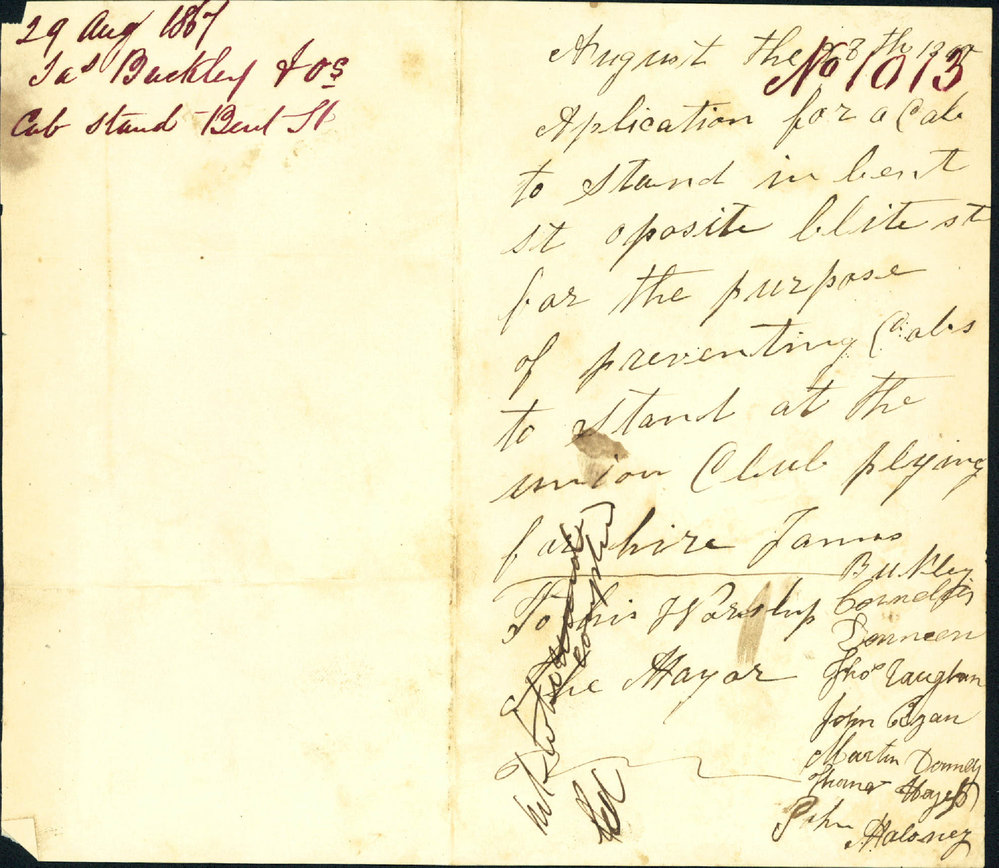 29 Aug 1867
Jas Buckley & os
Cab stand Bent St
August the 28th
No 1013
Aplication for a Cab
to stand in bent
st oposite blite st
for the purpose
of preventing Cabs
to stand at the
union Club plying
for hire James
Buckley
To his Worship Cornelius
Donneen
The Mayor Thos Vaughan
John Ryan
Martin Downey
Thomas Hayes
John Maloney